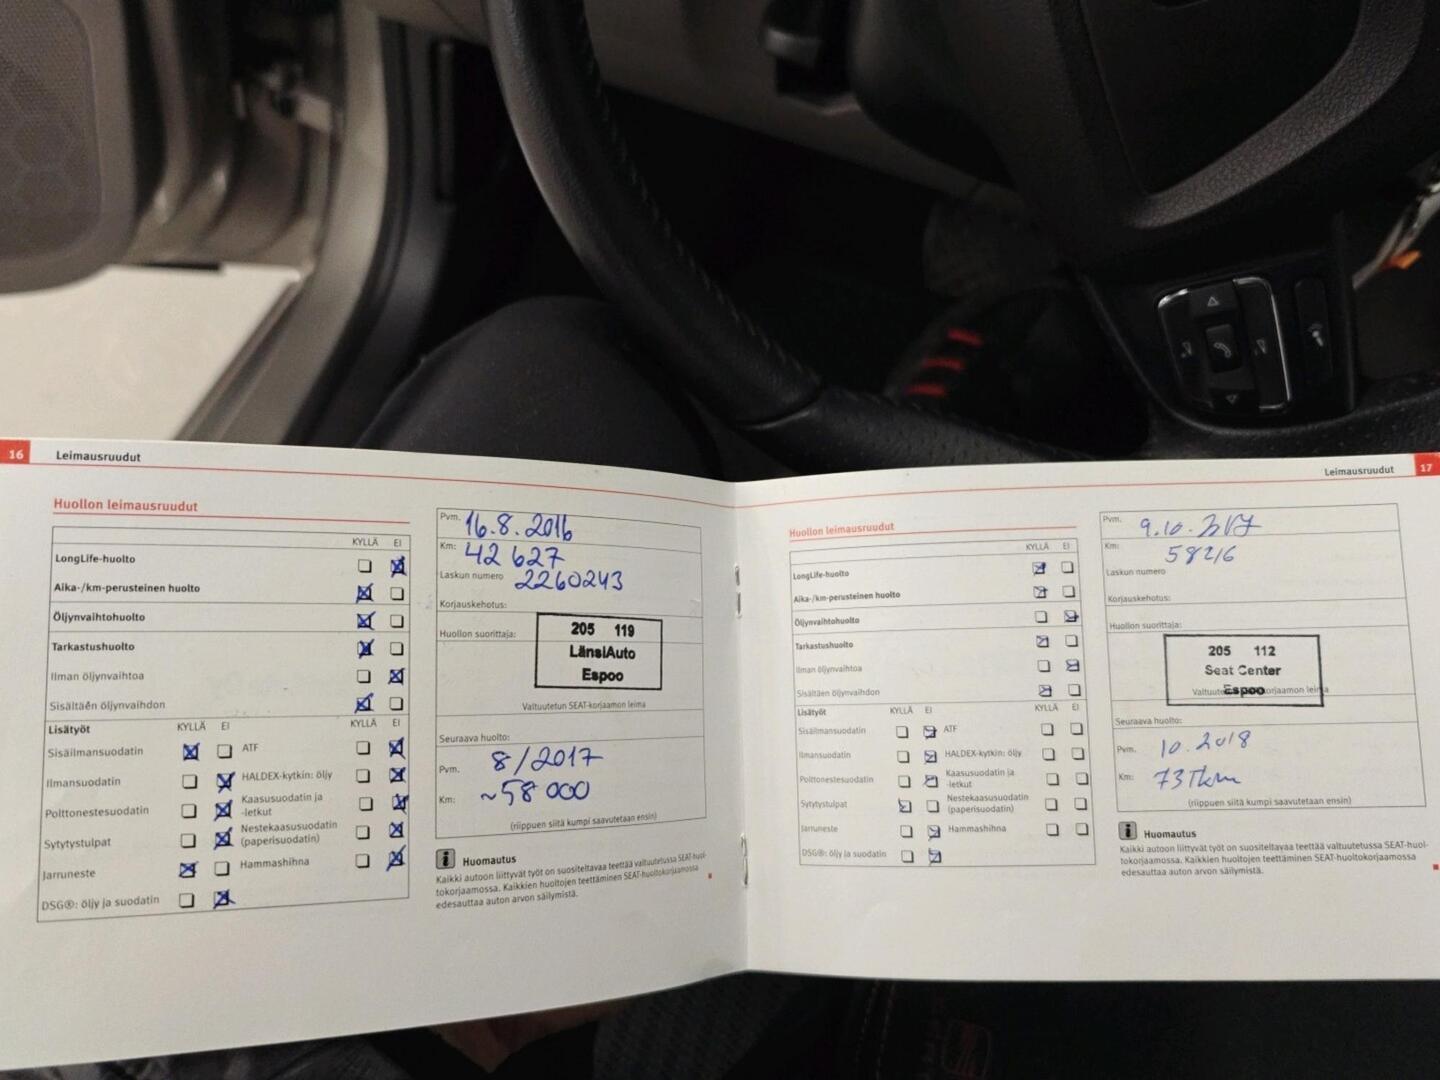 16 Leimausruudut
Huollon leimausruudut
KYLLÄ EI
LongLife-huolto
Aika-/km-perusteinen huolto
Öljynvaihtohuolto
Tarkastushuolto
Ilman öljynvaihtoa
Sisältäen öljynvaihdon
Lisätyöt KYLLÄ EI KYLLÄ EI
Sisäilmansuodatin ATF
Ilmansuodatin HALDEX-kytkin: öljy
Polttonestesuodatin Kaasusuodatin ja
-letkut
Sytytystulpat Nestekaasusuodatin
(paperisuodatin)
Jarruneste Hammashihna
DSG®: öljy ja suodatin
Pvm. 16.8.2016
Km: 42 627
Laskun numero 2260243
Korjauskehotus:
Huollon suorittaja:
205 119
LänsiAuto
Espoo
Valtuutetun SEAT-korjaamon leima
Seuraava huolto:
Pvm. 8/2017
Km: ~58 000
(riippuen siitä kumpi saavutetaan ensin)
Huomautus
Kaikki autoon liittyvät työt on suositeltavaa teettää valtuutetussa SEAT-huol-
tokorjaamossa. Kaikkien huoltojen teettäminen SEAT-huoltokorjaamossa
edesauttaa auton arvon säilymistä.
Leimausruudut 17
Huollon leimausruudut
KYLLÄ EI
LongLife-huolto
Aika-/km-perusteinen huolto
Öljynvaihtohuolto
Tarkastushuolto
Ilman öljynvaihtoa
Sisältäen öljynvaihdon
Lisätyöt KYLLÄ EI KYLLÄ EI
Sisäilmansuodatin ATF
Ilmansuodatin HALDEX-kytkin: öljy
Polttonestesuodatin Kaasusuodatin ja
-letkut
Sytytystulpat Nestekaasusuodatin
(paperisuodatin)
Jarruneste Hammashihna
DSG®: öljy ja suodatin
Pvm. 9.10.2017
Km: 58216
Laskun numero
Korjauskehotus:
Huollon suorittaja:
205 112
Seat Center
Espoo
Valtuutetun SEAT-korjaamon leima
Seuraava huolto:
Pvm. 10.2018
Km: 73Tkm
(riippuen siitä kumpi saavutetaan ensin)
Huomautus
Kaikki autoon liittyvät työt on suositeltavaa teettää valtuutetussa SEAT-huol-
tokorjaamossa. Kaikkien huoltojen teettäminen SEAT-huoltokorjaamossa
edesauttaa auton arvon säilymistä.